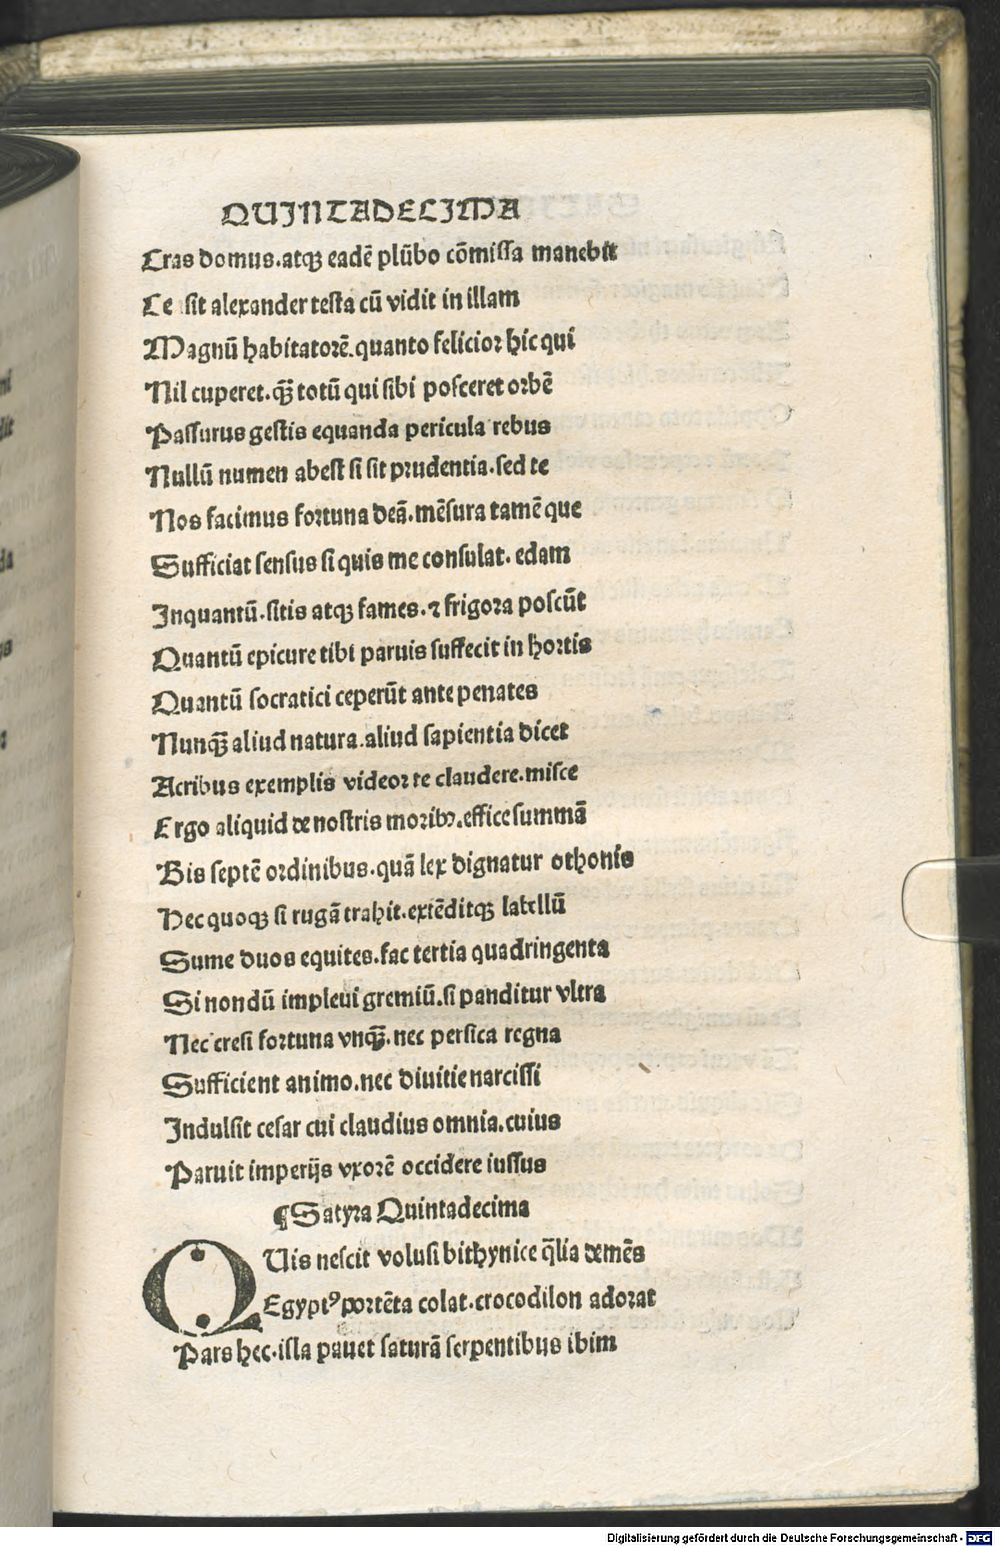 QUINTADECIMA
Cras domus.atqȝ eadē plūbo cōmissa manebit
Ce sit alexander testa cū vidit in illam
Magnū habitatorē.quanto felicior hic qui
Nil cuperet.qȝ̄ totū qui sibi posceret orbē
Passurus gestis equanda pericula rebus
Nullū numen abest si sit prudentia.sed te
Nos facimus fortuna deā.mēsura tamē que
Sufficiat sensus si quis me consulat. edam
Inquantū.sitis atqȝ fames.⁊ frigora poscūt
Quantū epicure tibi paruis suffecit in hortis
Quantū socratici ceperūt ante penates
Nunqȝ̄ aliud natura.aliud sapientia dicet
Acribus exemplis videor te claudere.misce
Ergo aliquid de nostris moribꝰ.effice summā
Bis septē ordinibus.quā lex dignatur othonis
Hec quoqȝ si rugā trahit.extēditqȝ labellū
Sume duos equites.fac tertia quadringenta
Si nondū impleui gremiū.si panditur vltra
Nec cresi fortuna vnqȝ̄.nec persica regna
Sufficient animo.nec diuitie narcissi
Indulsit cesar cui claudius omnia.cuius
Paruit imperijs vxorē occidere iussus
¶Satyra Quintadecima
QUis nescit volusi bithynice q̄lia demēs
Egyptꝰ portēta colat.crocodilon adorat
Pars hec.illa pauet saturā serpentibus ibim
Digitalisierung gefördert durch die Deutsche Forschungsgemeinschaft - DFG